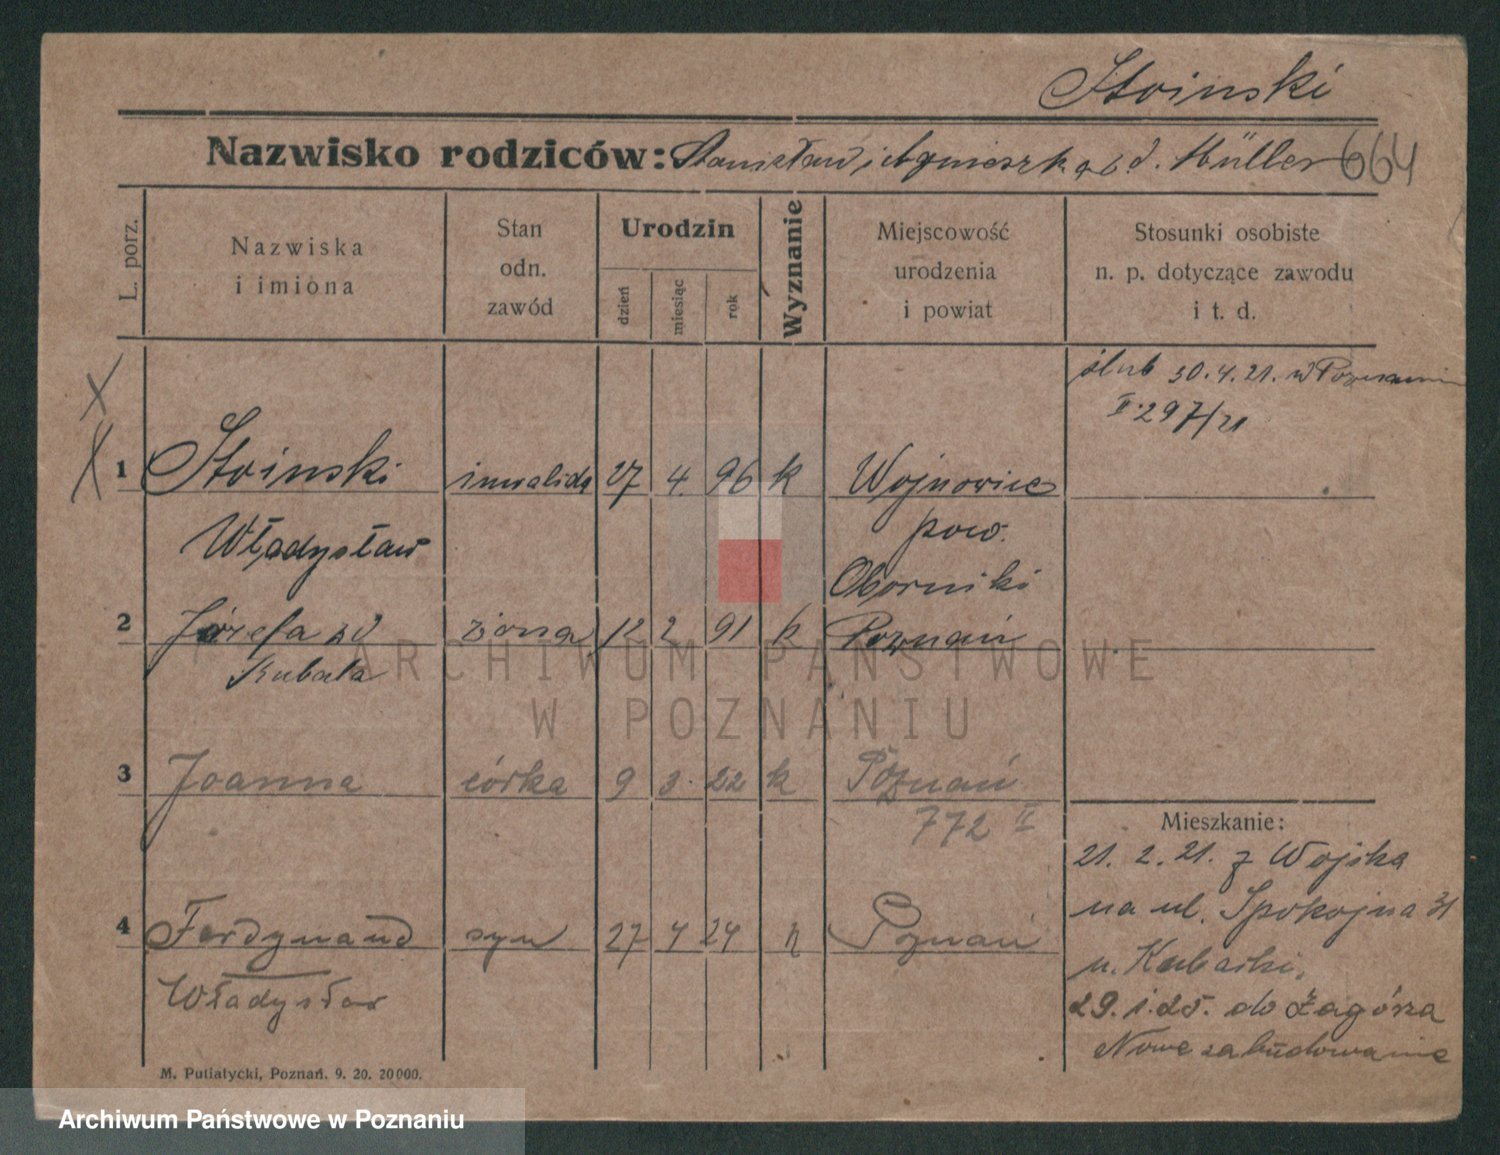 Stoinski
Nazwisko rodziców: Stanisław i Agnieszka z d. Müller 664
L. porz.
Nazwiska
i imiona
Stan
odn.
zawód
Urodzin
dzień
miesiąc
rok
Wyznanie
Miejscowość
urodzenia
i powiat
Stosunki osobiste
n. p. dotyczące zawodu
i t. d.
ślub 30.4.21. w Poznaniu
II 297/21
1 Stoinski inwalida 27 4. 96 k Wojnowice
Władysław pow.
Oborniki
2 Józefa zd żona 12 2 91 k Poznań
Kubała
3 Joanna córka 9 3. 22 k Poznań
772 II
Mieszkanie:
21. 2. 21. z Wojska
na ul. Spokojna 31
4 Ferdynand syn 27 4 24 k Poznań
u. 
Władysław
29. 1. 25. do Zagórza
Nowe zabudowanie
M. Putiatycki, Poznań. 9. 20. 20000.
ARCHIWUM PAŃSTWOWE
W POZNANIU
Archiwum Państwowe w Poznaniu